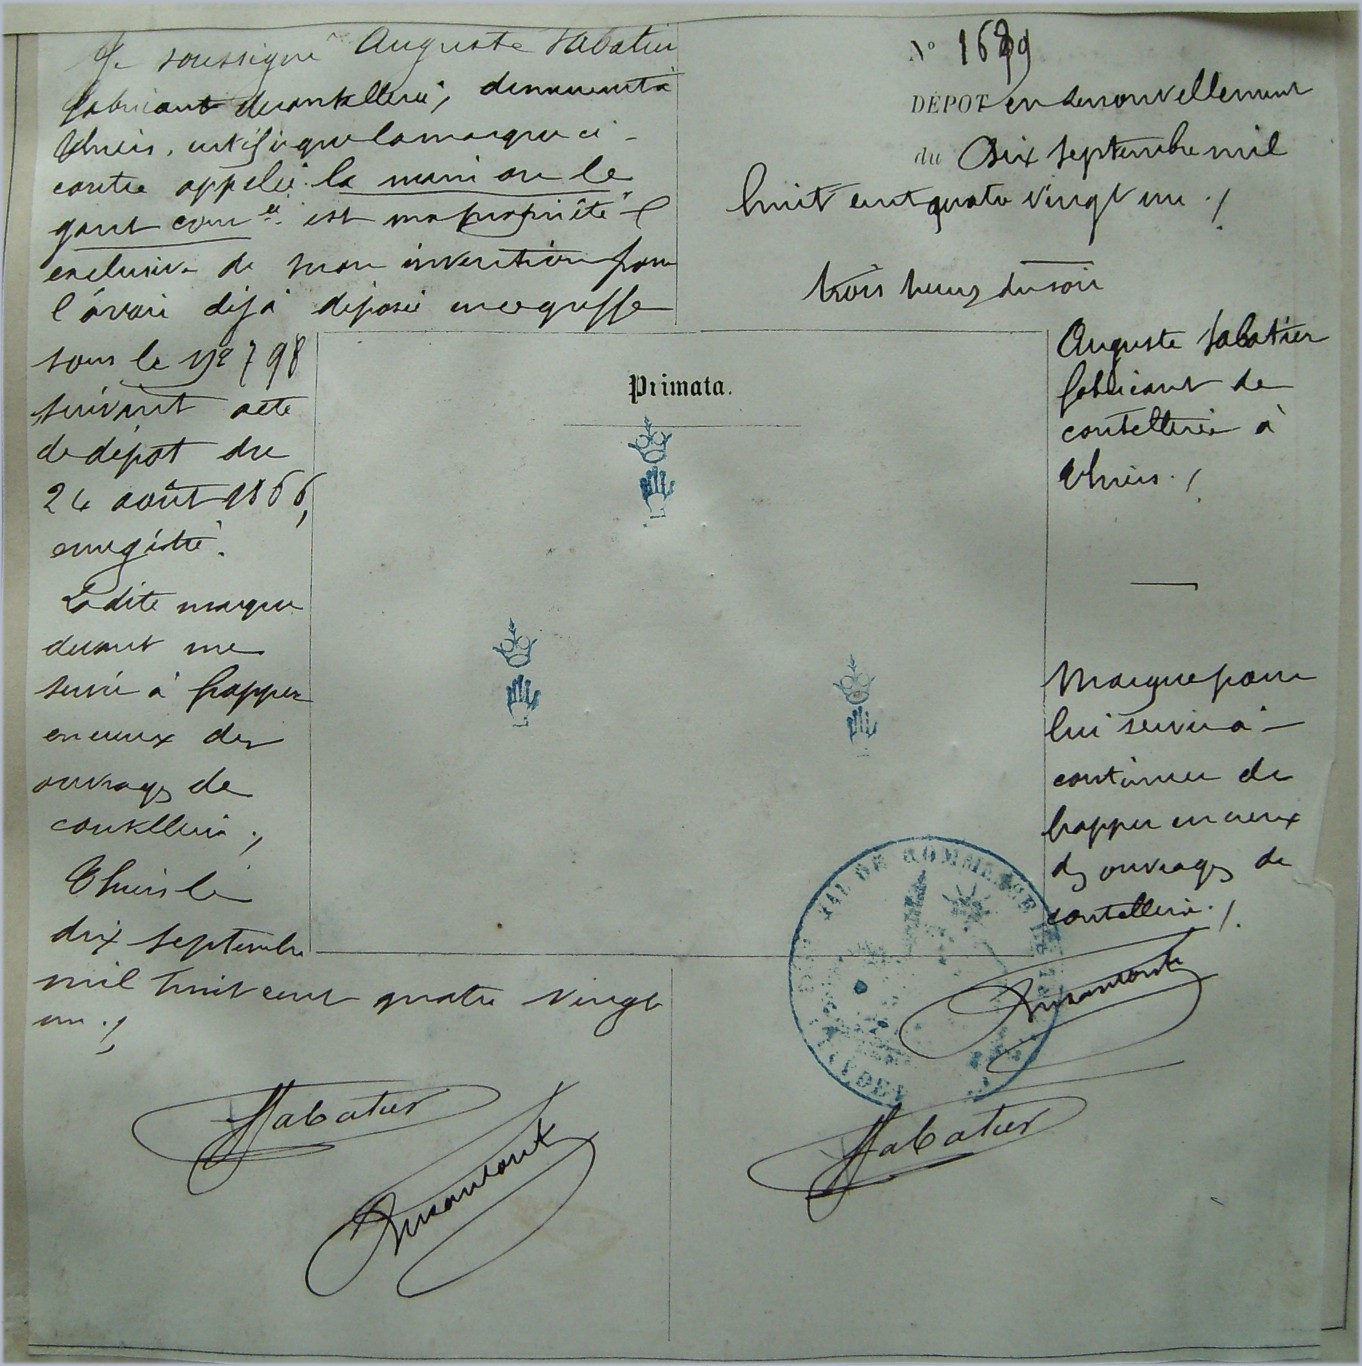 Je soussigné Auguste Sabatier
fabricant de coutellerie, demeurant à
Thiers, certifie que la marque ci-
contre appelée la main ou le
gant cour ée est ma propriété
exclusive de mon invention pour
l'avoir déjà déposée au greffe
sous le no 798
suivant acte
de dépôt du
24 août 1866,
enregistré.
La dite marque
devant me
servir à frapper
en creux des
ouvrages de
coutellerie ./
Thiers le
dix septembre
mil huit cent quatre vingt
un ./
Sabatier
No 1699
DÉPOT en renouvellement
du Dix septembre mil
huit cent quatre vingt un ./
trois heures du soir
Primata.
Auguste Sabatier
fabricant de
coutellerie à
Thiers ./
Marque pour
lui servir à
continuer de
frapper en creux
des ouvrages de
coutellerie ./
DE COMMERCE
Sabatier